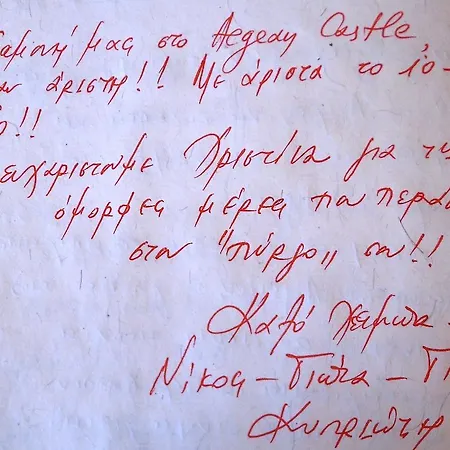 αμονή μας στο Aegean Castle,
αν άριστη!! Με άριστα το 10-
!!
ευχαριστούμε Χριστίνα για τις
όμορφες μέρες που περά
στον "πύργο" σου!!
Καλό χειμώνα
Νίκος - Γιώτα - Γι
Κυπριώτη